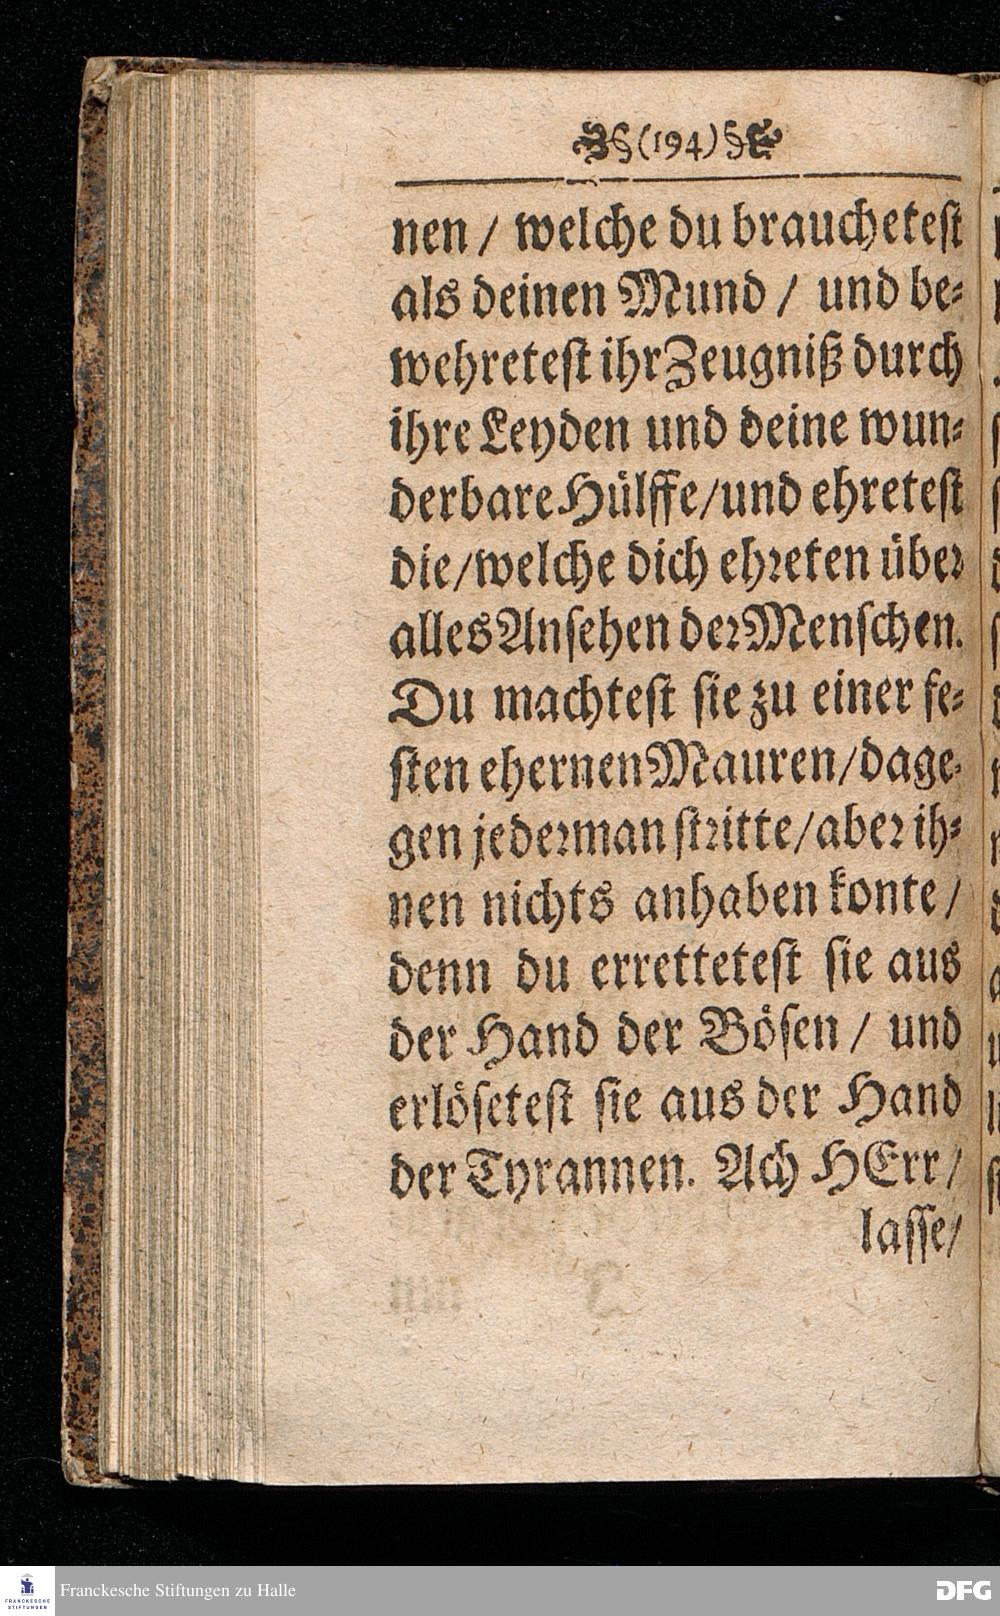 §(194)§
nen / welche du brauchetest
als deinen Mund / und be-
wehretest ihr Zeugniß durch
ihre Leyden und deine wun-
derbare Hülffe/und ehretest
die/welche dich ehreten über
alles Ansehen der Menschen.
Du machtest sie zu einer fe-
sten ehernen Mauren/dage-
gen jederman stritte/aber ih-
nen nichts anhaben konte /
denn du errettetest sie aus
der Hand der Bösen / und
erlösetest sie aus der Hand
der Tyrannen. Ach HErr/
lasse/
FRANCKESCHE
STIFTUNGEN
Franckesche Stiftungen zu Halle
DFG